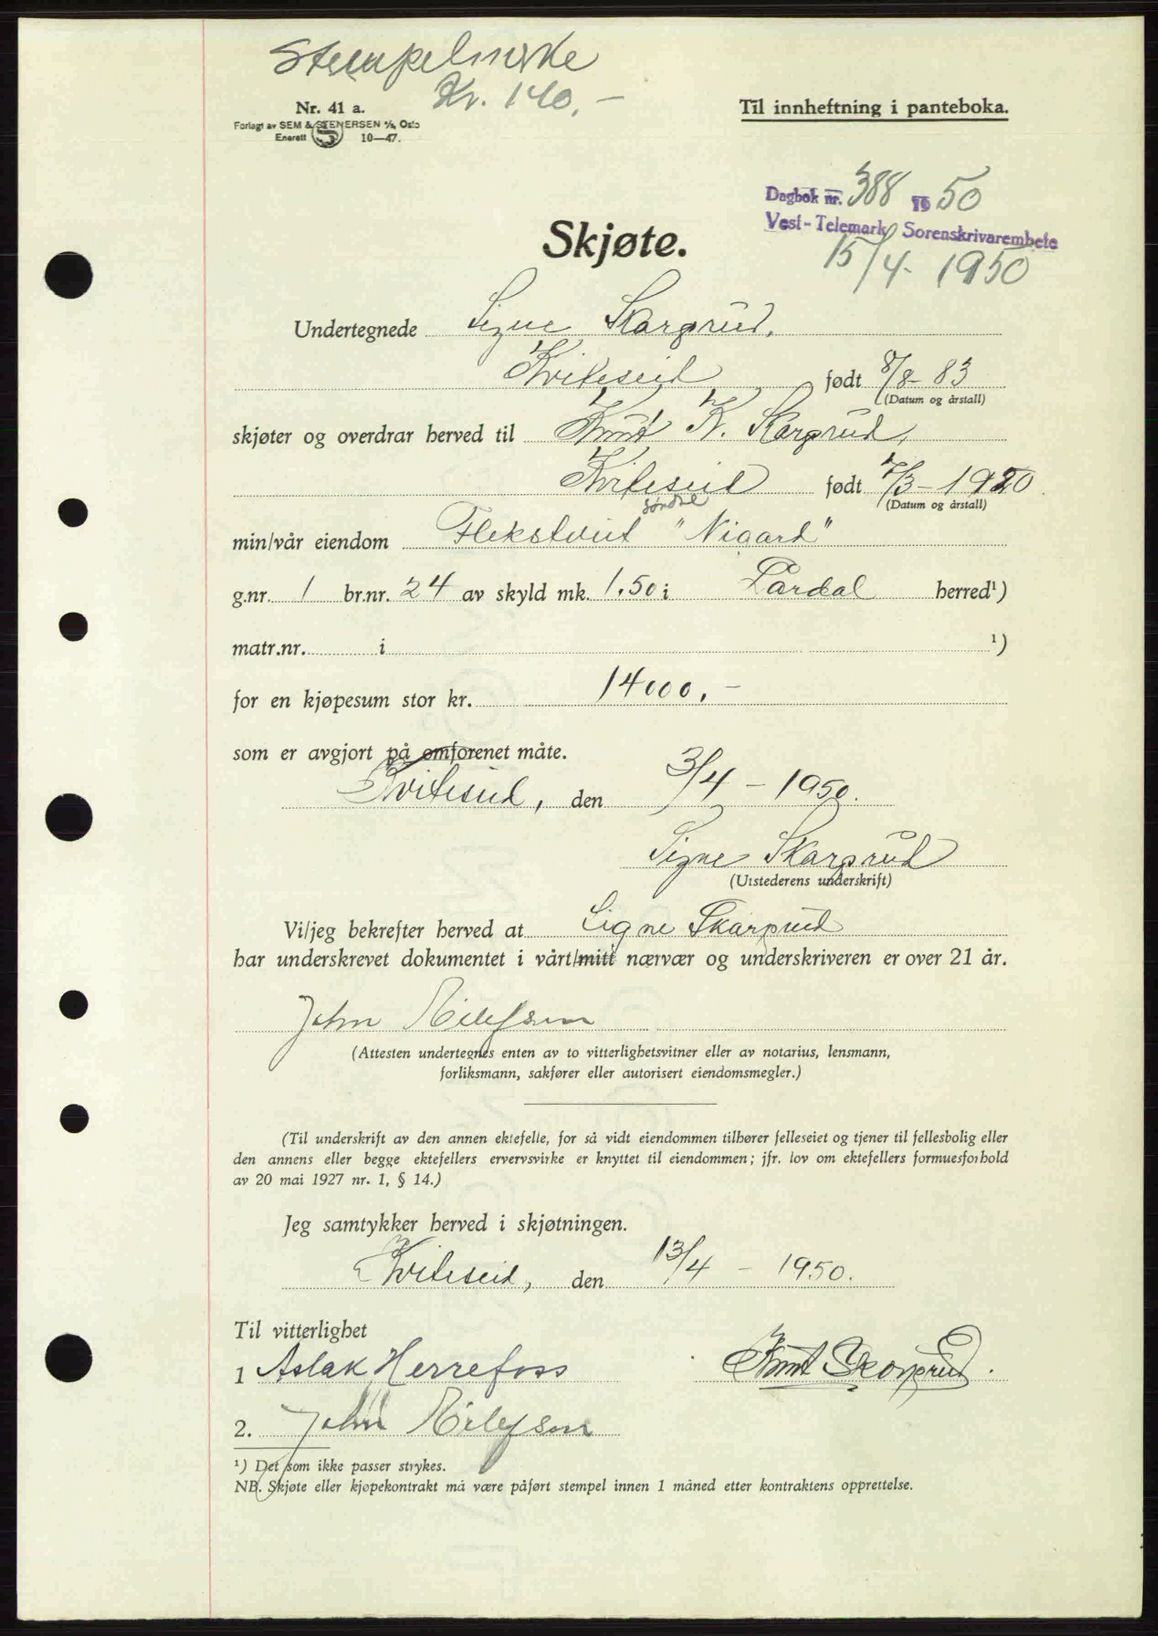 Stempelmerke
Kr. 140,-
Nr. 41 a.
Forlagt av SEM & STENERSEN A/S, Oslo
Enerett 10—47.
Til innheftning i panteboka.
Dagbok nr. 388 1950
Vest-Telemark Sorenskrivarembete
15/4- 1950
Skjøte.
Undertegnede Signe Skarprud,
Kviteseid født 8/8- 83
(Datum og årstall)
skjøter og overdrar herved til Knut K. Skarprud,
Kviteseid født 7/3- 1920
(Datum og årstall)
søndre
min/vår eiendom Flekstveit "Nigard"
g.nr. 1 br.nr. 24 av skyld mk. 1.50 i Lårdal herred¹)
matr.nr. i ¹)
for en kjøpesum stor kr. 14000,-
som er avgjort på omforenet måte.
Kviteseid, den 3/4 - 1950.
Signe Skarprud
(Utstederens underskrift)
Vi/jeg bekrefter herved at Signe Skarprud
har underskrevet dokumentet i vårt/mitt nærvær og underskriveren er over 21 år.
John Eilefson
(Attesten undertegnes enten av to vitterlighetsvitner eller av notarius, lensmann,
forliksmann, sakfører eller autorisert eiendomsmegler.)
(Til underskrift av den annen ektefelle, for så vidt eiendommen tilhører felleseiet og tjener til fellesbolig eller
den annens eller begge ektefellers ervervsvirke er knyttet til eiendommen; jfr. lov om ektefellers formuesforhold
av 20 mai 1927 nr. 1, § 14.)
Jeg samtykker herved i skjøtningen.
Kviteseid, den 13/4 - 1950.
Til vitterlighet
1 Aslak Herrefoss Knut Skarprud.
2. John Eilefson
¹) Det som ikke passer strykes.
NB. Skjøte eller kjøpekontrakt må være påført stempel innen 1 måned etter kontraktens opprettelse.